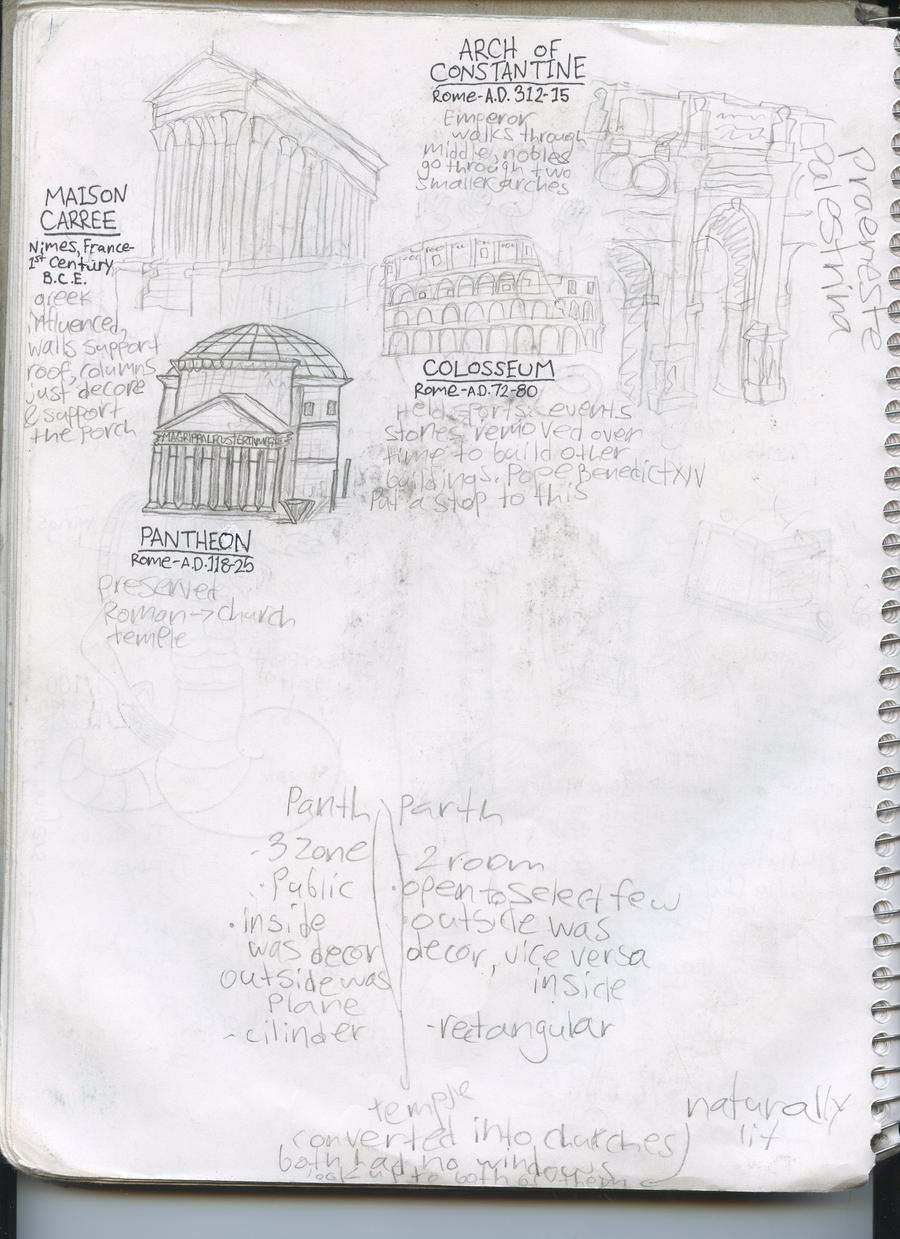 ARCH OF
CONSTANTINE
Rome-A.D. 312-15
Emperor
walks through
middle, nobles
go through two
smaller arches
Praeneste
Palestrina
MAISON
CARREE
Nimes, France-
1st Century
B.C.E.
greek
influenced,
walls support
roof, columns
just decore
& support
the porch
COLOSSEUM
Rome-A.D. 72-80
Held sports events
stories removed over
time to build other
buildings. Pope Benedict XIV
Put a stop to this
PANTHEON
Rome-A.D. 118-25
preserved
Roman → church
temple
Panth
- 3 zone
· Public
· inside
was decor
outside was
Plane
- cilinder
Parth
- 2 room
· open to select few
· outside was
decor, vice versa
inside
- rectangular
temple
converted into churches
both had no windows
look up to both of them
naturally
lit